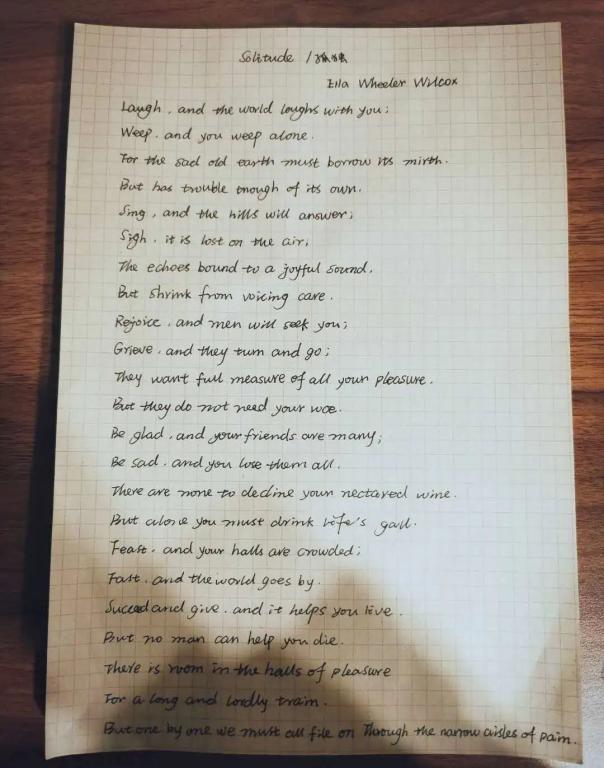 Solitude / 孤独
Ella Wheeler Wilcox
Laugh, and the world laughs with you;
Weep, and you weep alone.
For the sad old earth must borrow its mirth.
But has trouble enough of its own.
Sing, and the hills will answer;
Sigh, it is lost on the air;
The echoes bound to a joyful sound,
But shrink from voicing care.
Rejoice, and men will seek you;
Grieve, and they turn and go;
They want full measure of all your pleasure.
But they do not need your woe.
Be glad, and your friends are many;
Be sad, and you lose them all.
There are none to decline your nectared wine.
But alone you must drink life's gall.
Feast, and your halls are crowded;
Fast, and the world goes by.
Succeed and give, and it helps you live.
But no man can help you die.
There is room in the halls of pleasure
For a long and lordly train.
But one by one we must all file on Through the narrow aisles of pain.